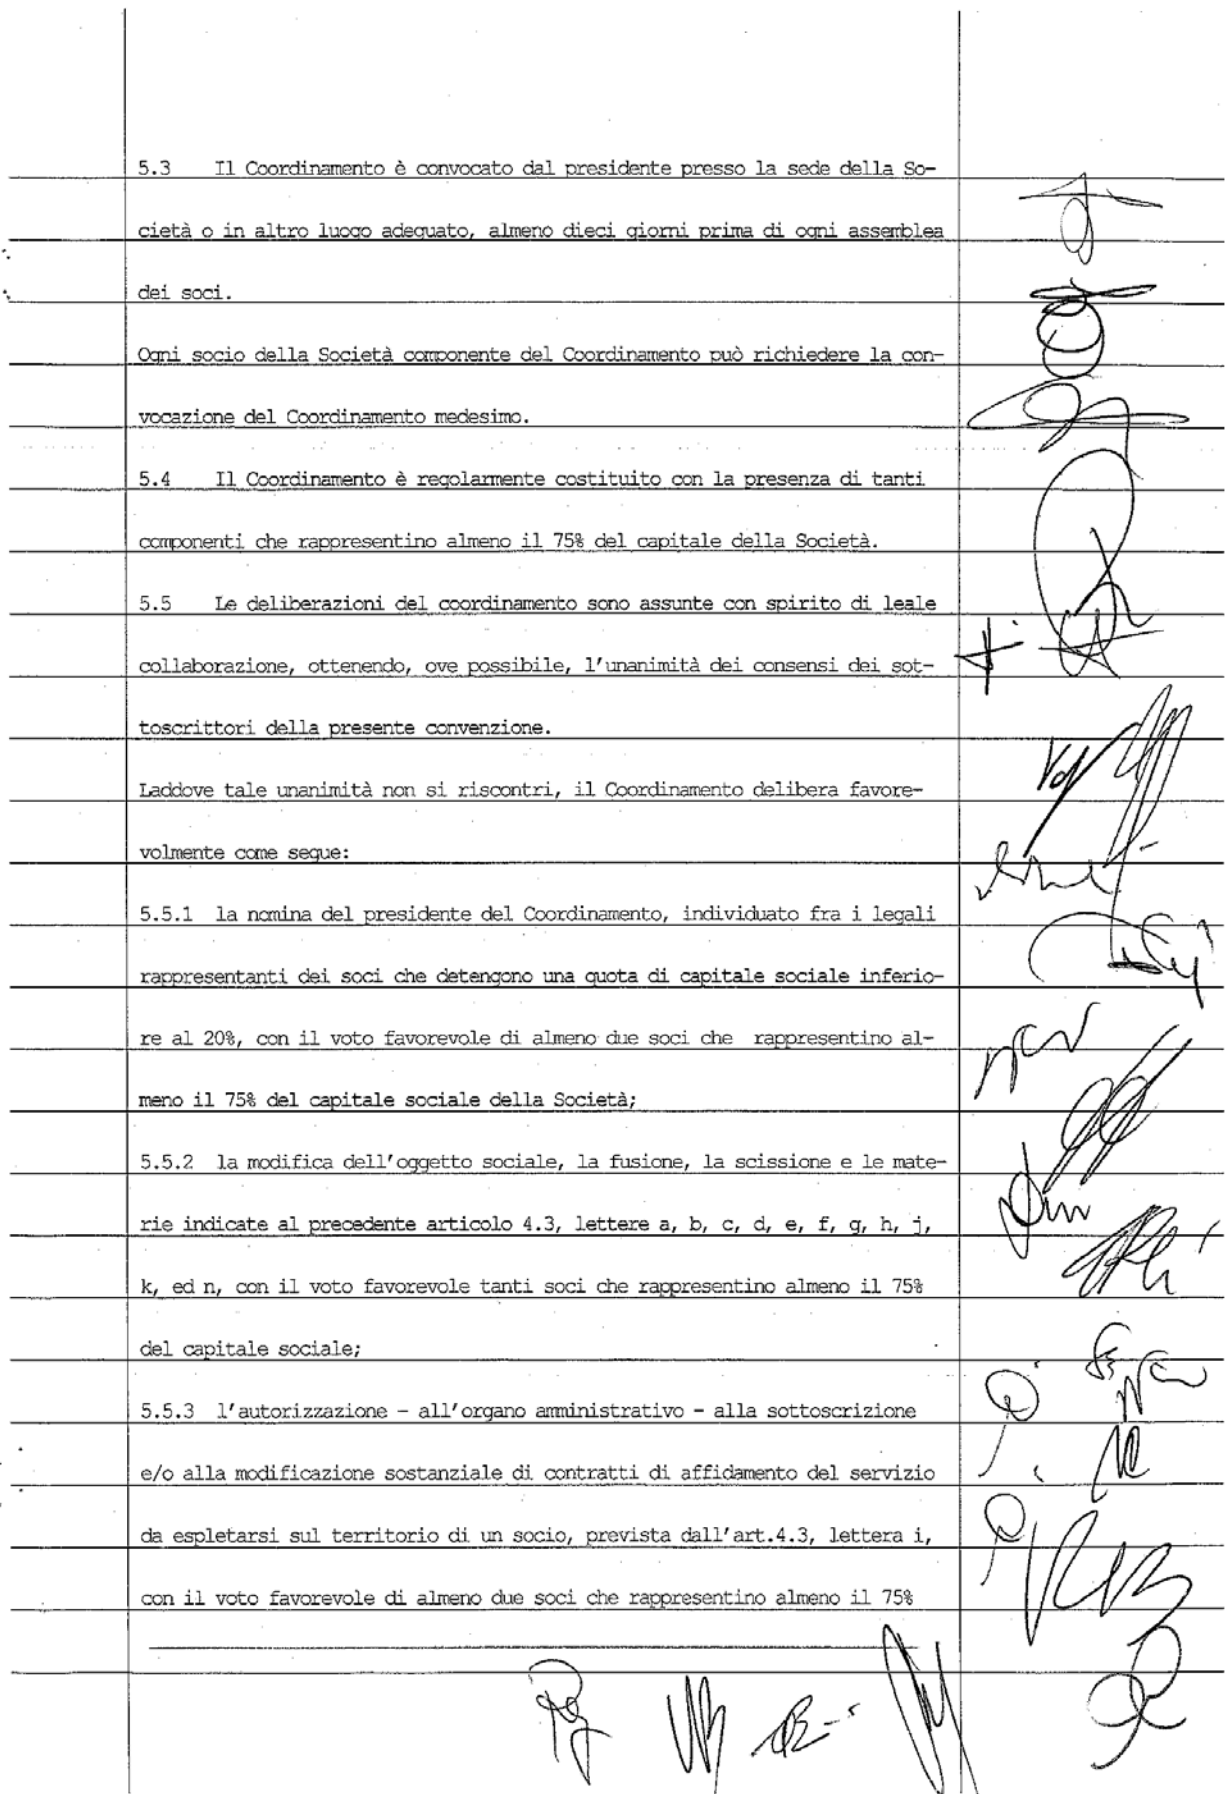 5.3 Il Coordinamento è convocato dal presidente presso la sede della So-
cietà o in altro luogo adeguato, almeno dieci giorni prima di ogni assemblea
dei soci.
Ogni socio della Società componente del Coordinamento può richiedere la con-
vocazione del Coordinamento medesimo.
5.4 Il Coordinamento è regolarmente costituito con la presenza di tanti
componenti che rappresentino almeno il 75% del capitale della Società.
5.5 Le deliberazioni del coordinamento sono assunte con spirito di leale
collaborazione, ottenendo, ove possibile, l'unanimità dei consensi dei sot-
toscrittori della presente convenzione.
Laddove tale unanimità non si riscontri, il Coordinamento delibera favore-
volmente come segue:
5.5.1 la nomina del presidente del Coordinamento, individuato fra i legali
rappresentanti dei soci che detengono una quota di capitale sociale inferio-
re al 20%, con il voto favorevole di almeno due soci che rappresentino al-
meno il 75% del capitale sociale della Società;
5.5.2 la modifica dell'oggetto sociale, la fusione, la scissione e le mate-
rie indicate al precedente articolo 4.3, lettere a, b, c, d, e, f, g, h, j,
k, ed n, con il voto favorevole tanti soci che rappresentino almeno il 75%
del capitale sociale;
5.5.3 l'autorizzazione - all'organo amministrativo - alla sottoscrizione
e/o alla modificazione sostanziale di contratti di affidamento del servizio
da espletarsi sul territorio di un socio, prevista dall'art.4.3, lettera i,
con il voto favorevole di almeno due soci che rappresentino almeno il 75%